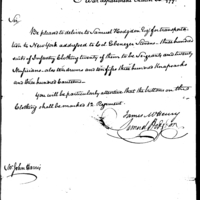 War Department
Sir
Be pleased to deliver to Samuel Hodgdon Esq. for transporta-
tion to New York addressed to Col. Ebenezer Stevens, three hundred
suits of Infantry Clothing twenty of them to be Sergeants and twenty
Musicians, also ten drums and ten fifes three hundred Knapsacks
and three hundred Canteens
You will be particularly attentive that the buttons on this
Clothing shall be marked 12 Regiment.
James McHenry
Mr John Harris